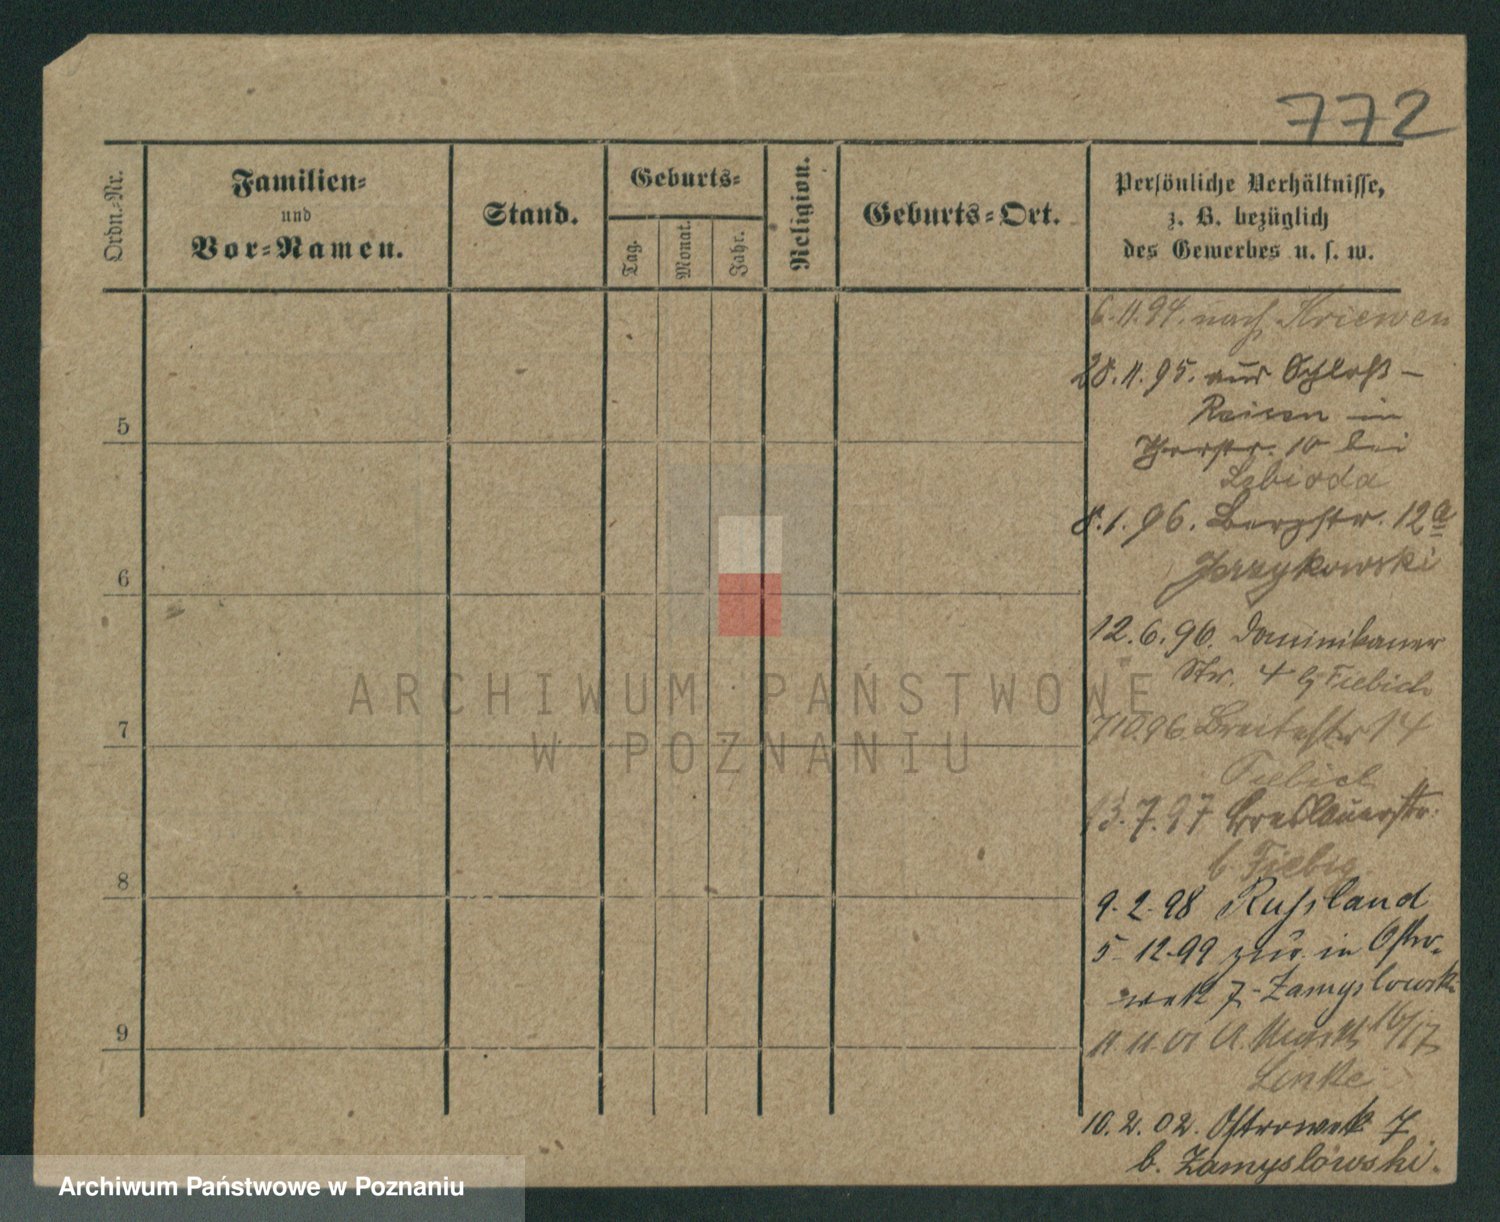 772
Ordn.-Nr.
Familien-
und
Vor-Namen.
Stand.
Geburts-
Tag.
Monat.
Jahr.
Religion.
Geburts-Ort.
Persönliche Verhältnisse,
z. B. bezüglich
des Gewerbes u. s. w.
6.11.94. nach Kriewen
28.11.95. aus Schloß-
Reisen in
10 bei
Lebioda
5
8.1.96. Bergstr. 12a
Jerzykowski
6
12.6.96. Dominikaner
Str. 4 b Fiebich
7
7 10 96. Breitestr 14
Fiebich
13.7.97 Breslauerstr.
b. Fiebig
8
9.2.98 Russland
5.12.99 zur. in Ostro-
wek 7 Zamyslowski
9
11.11.01 A. Markt 16/17
Linke
10.2.02. Ostrowek 7
b. Zamyslowski.
ARCHIWUM PAŃSTWOWE
W POZNANIU
Archiwum Państwowe w Poznaniu